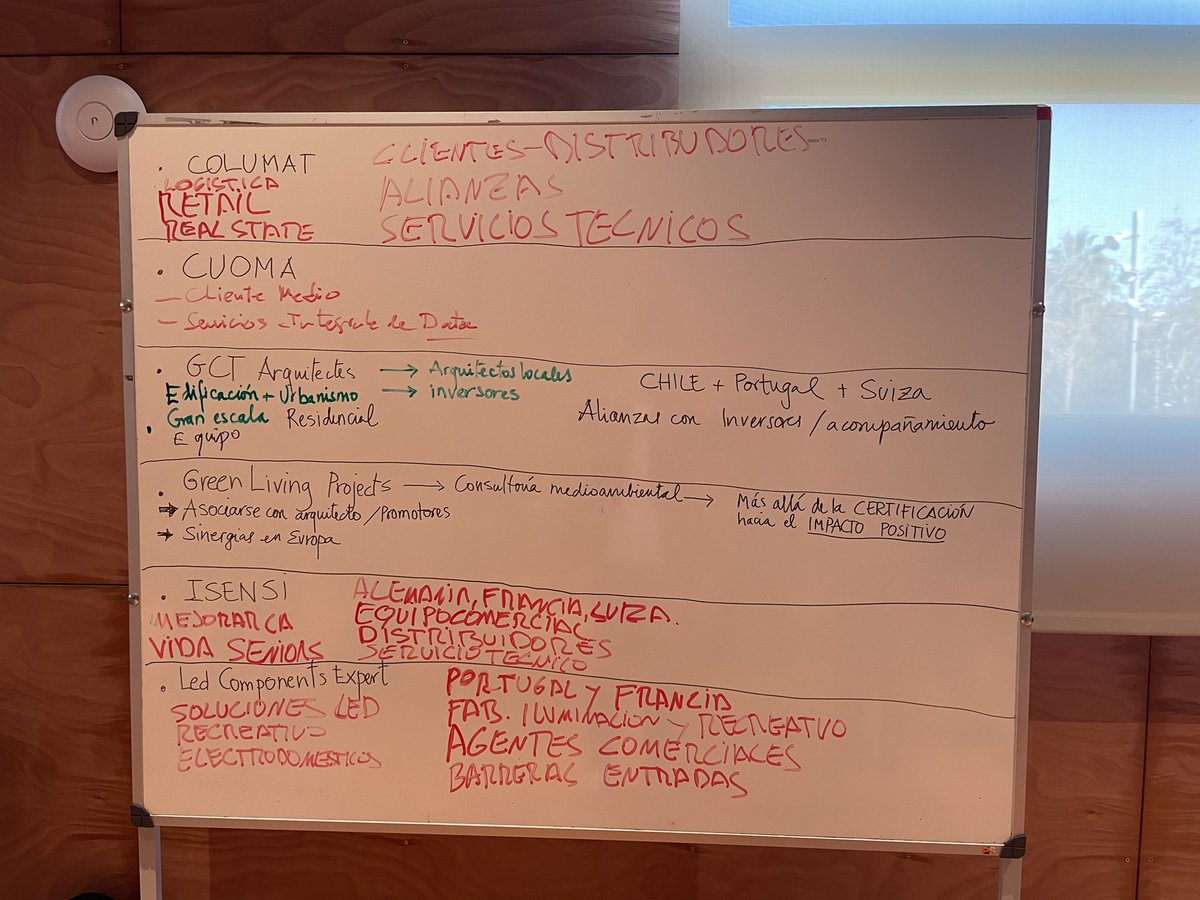 • COLUMAT CLIENTES-DISTRIBUDORES
LOGISTICA
RETAIL ALIANZAS
REAL STATE SERVICIOS TECNICOS
• CUOMA
— Cliente Medio
— Servicios Integrale de Datae
• GCT Arquitectes → Arquitectos locales
Edificación + Urbanismo → inversores
Gran escala Residencial
• Equipo
CHILE + Portugal + Suiza
Alianzas con Inversores / acompañamiento
• Green Living Projects → Consultoría medioambiental → Más allá de la CERTIFICACIÓN
hacia el IMPACTO POSITIVO
→ Asociarse con arquitecto / Promotores
→ Sinergias en Europa
• ISENSI ALEMANIA, FRANCIA, SUIZA.
MEJORAR CA EQUIPO COMERCIAL
VIDA SENIORS DISTRIBUIDORES
SERVICIO TECNICO
• Led Components Expert PORTUGAL Y FRANCIA
SOLUCIONES LED FAB. ILUMINACION Y RECREATIVO
RECREATIVO AGENTES COMERCIALES
ELECTRODOMESTICOS BARRERAS ENTRADAS